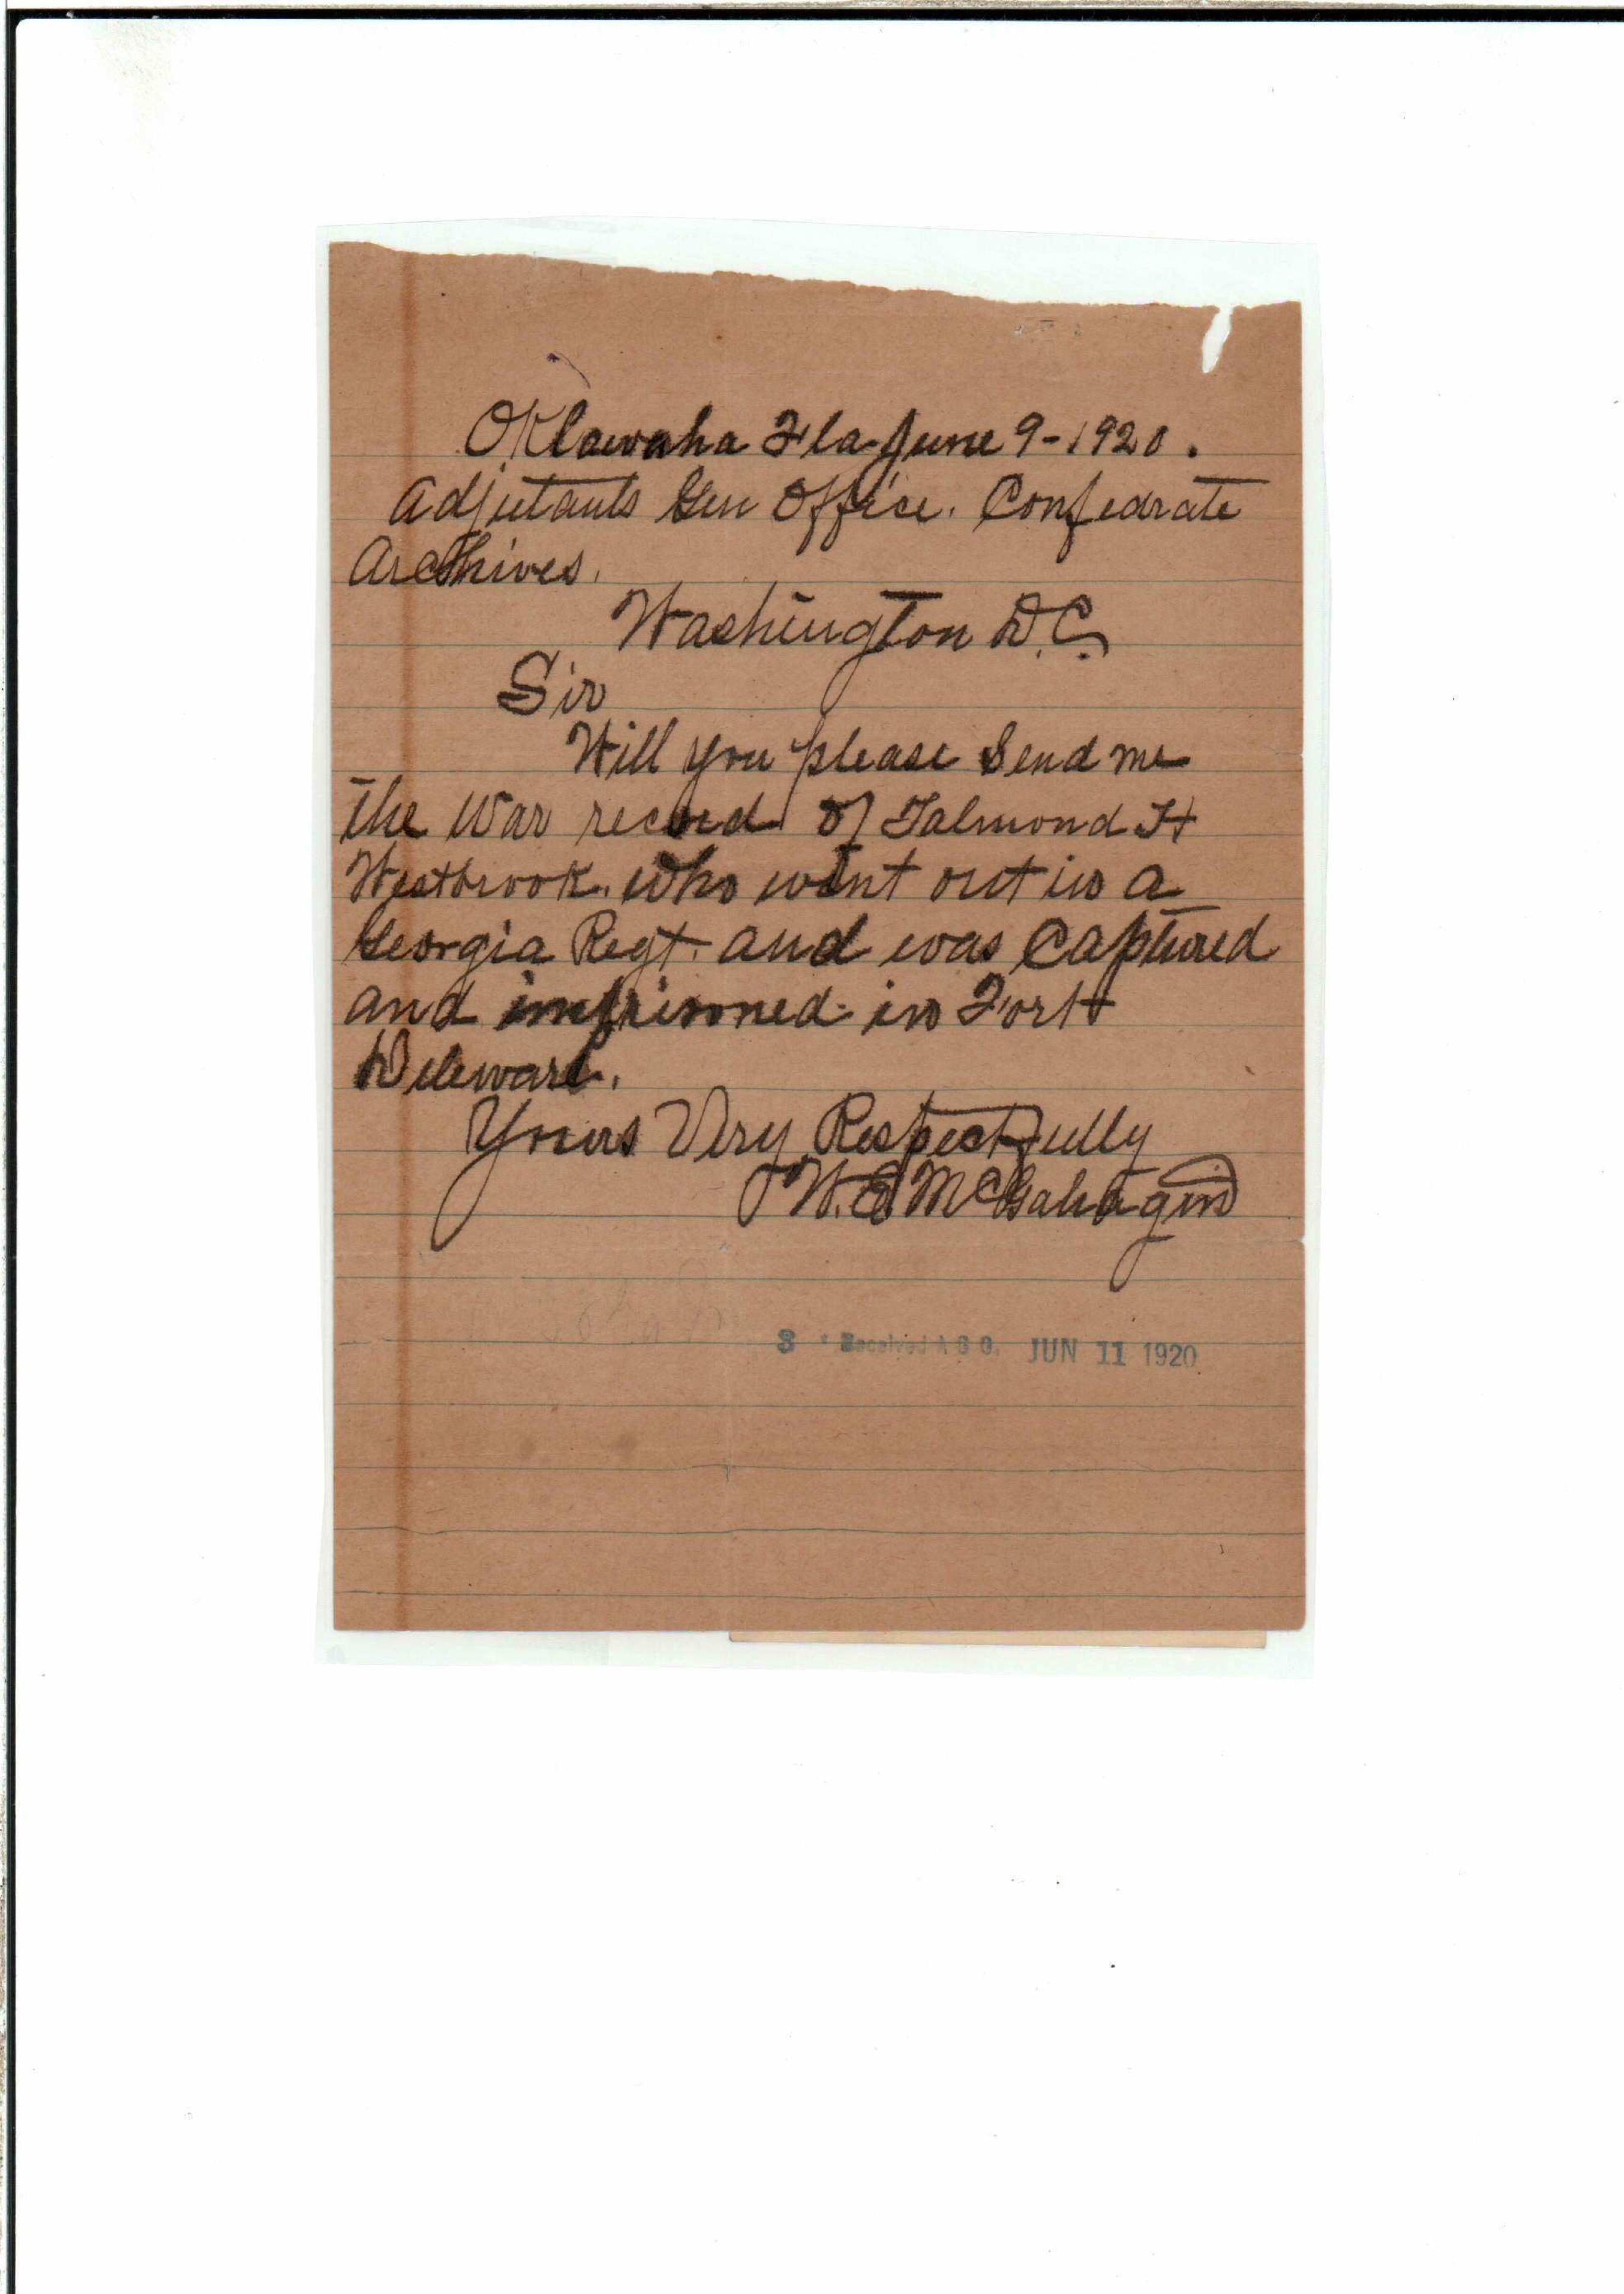 Oklawaha Fla June 9-1920.
Adjutants Gen Office. Confedrate
Archives.
Washington D.C.
Sir
Will you please Send me
the War record of Talmond H
Westbrook. who went out in a
Georgia Regt. and was Captured
and imprisoned in Fort
Deleware.
Yours Very Respectfully
W. E McGahagin
3 Received A G O. JUN 11 1920